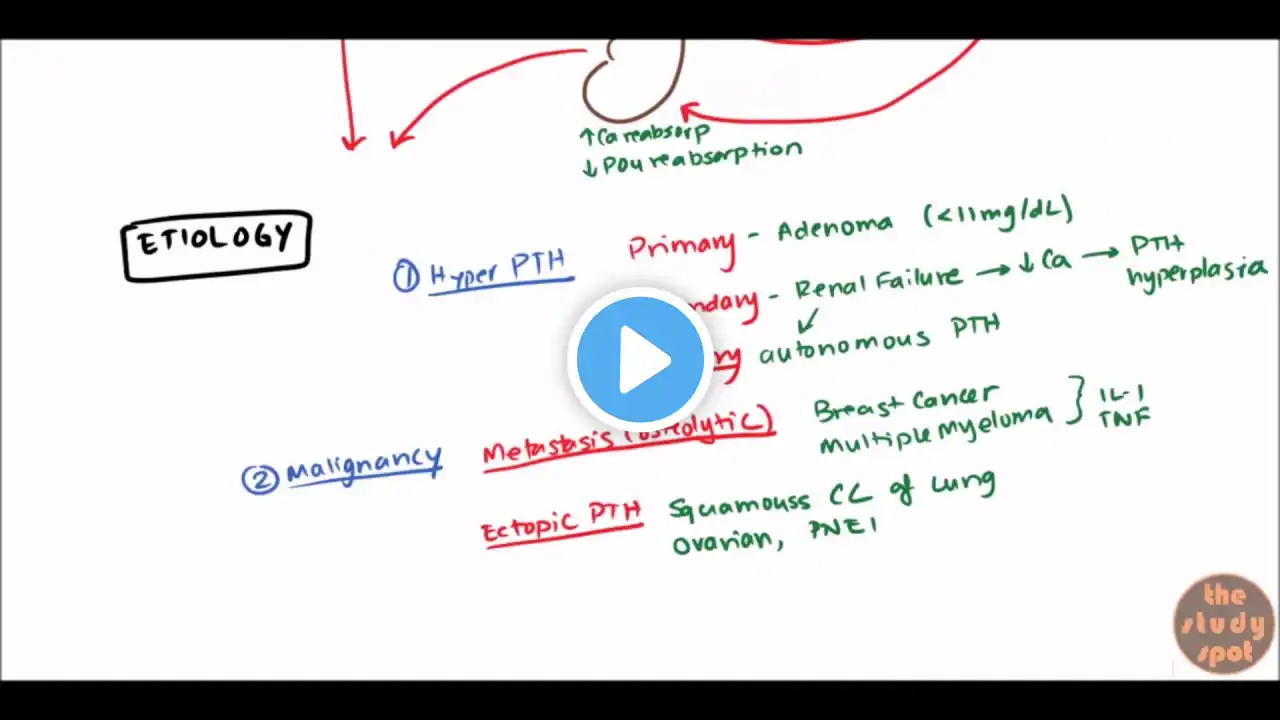 ↑ Ca reabsorp
↓ PO4 reabsorption
ETIOLOGY
① Hyper PTH
Primary - Adenoma (<11mg/dL)
ndary - Renal Failure → ↓ Ca → PTH hyperplasia
ry autonomous PTH
② Malignancy
Metastasis (Osteolytic)
Breast Cancer
multiple myeloma } IL-1 TNF
Ectopic PTH
Squamouss CC of lung
ovarian,
the
study
spot